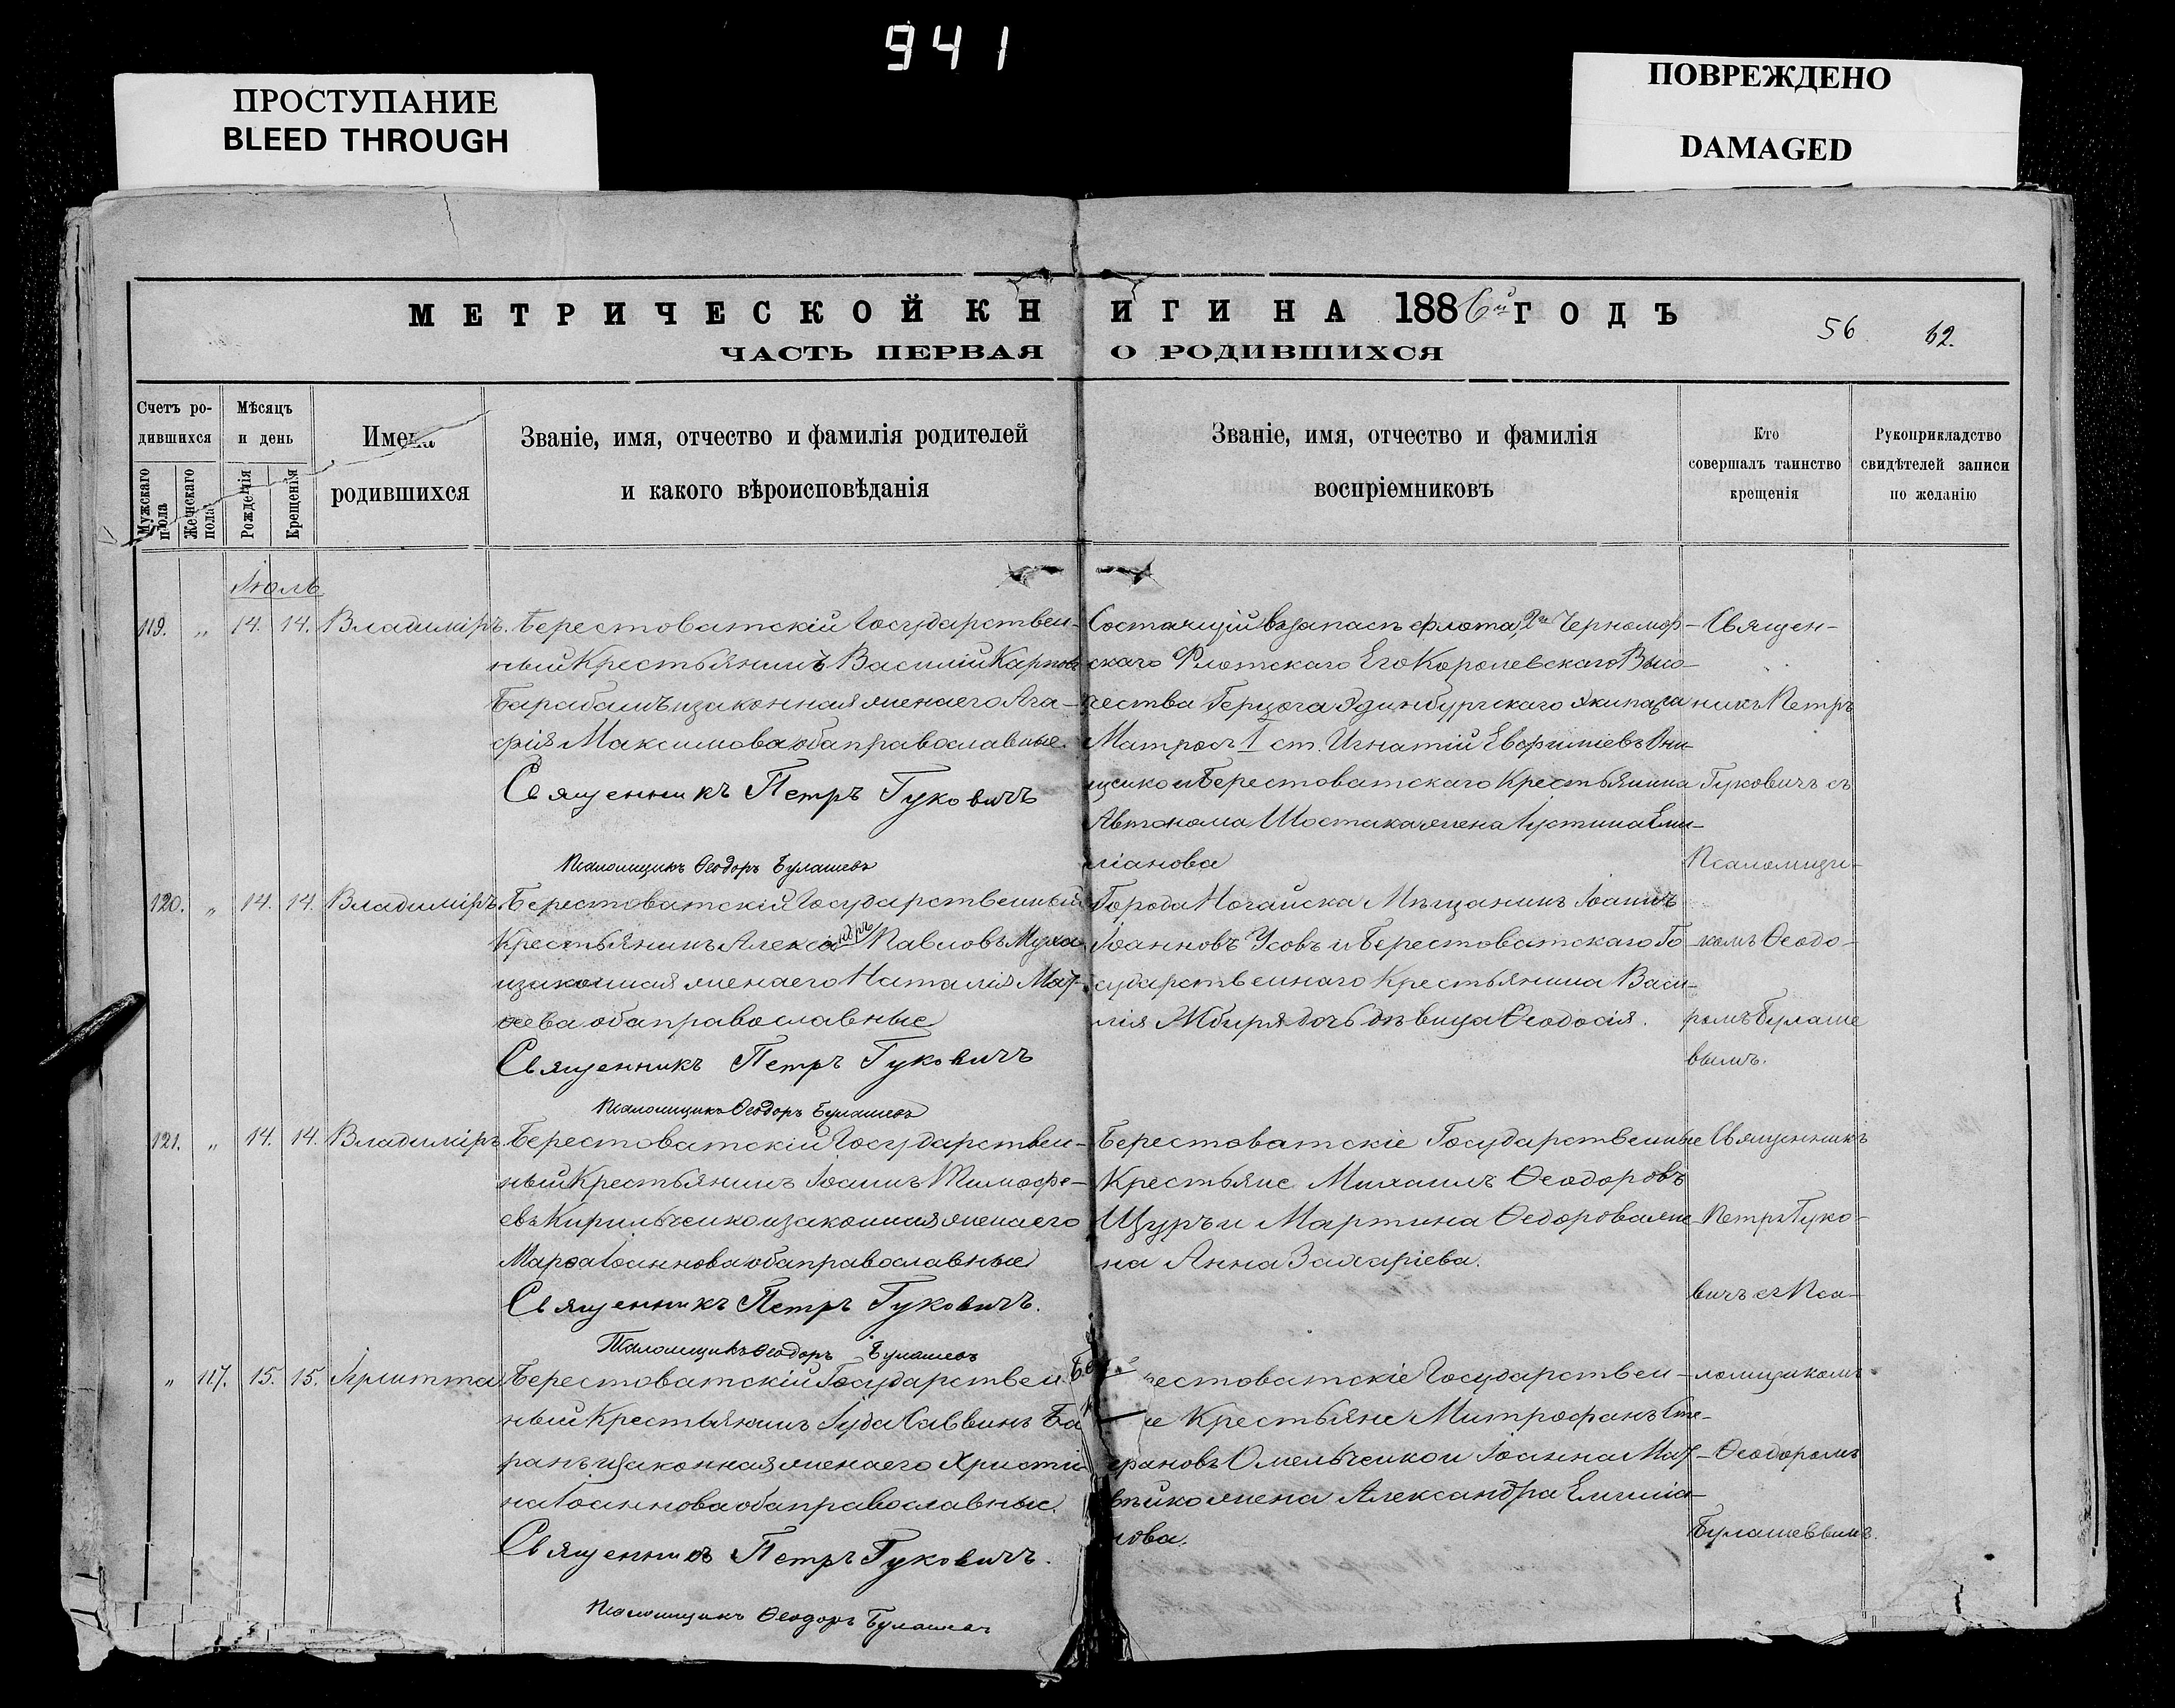 941
ПРОСТУПАНИЕ
BLEED THROUGH
ПОВРЕЖДЕНО
DAMAGED
МЕТРИЧЕСКОЙ КНИГИ НА 1886й ГОДЪ
ЧАСТЬ ПЕРВАЯ О РОДИВШИХСЯ
56 62.
Счетъ ро-
дившихся
Мужскаго пола
Женскаго пола
Мѣсяцъ
и день
Рожденія
Крещенія
Имена
родившихся
Званіе, имя, отчество и фамилія родителей
и какого вѣроисповѣданія
Званіе, имя, отчество и фамилія
воспріемниковъ
Кто
совершалъ таинство
крещенія
Рукоприкладство
свидѣтелей записи
по желанію
Іюль
119. „ 14. 14. Владиміръ.
Берестоватскій Государствен-
ный Крестьянинъ Василій Карповъ
Барабашъ и законная жена его Ага-
фія Максимова оба православные.
Священникъ Петръ Гуковичъ
Псаломщикъ Ѳеодоръ Булашевъ
Состоящій въ запасѣ флота, 2го Черномор-
скаго Флотскаго Его Королевскаго Высо-
чества Герцога Эдинбургскаго экипажа
Матросъ 1 ст. Игнатій Евфиміевъ
и Берестоватскаго Крестьянина
Автонома Шостака жена Іустина Еми-
ліанова
Священ-
никъ Петръ
Гуковичъ съ
Псаломщи-
120. „ 14. 14. Владиміръ.
Берестоватскій Государственный
Крестьянинъ Александръ Павловъ Муха
и законная жена его Наталія Мат-
ѳеева оба православные
Священникъ Петръ Гуковичъ
Псаломщикъ Ѳеодоръ Булашевъ
Города Ногайска Мѣщанинъ Іоаннъ
Іоанновъ Усовъ и Берестоватскаго Го-
сударственнаго Крестьянина Васи-
лія дочь дѣвица Ѳеодосія.
комъ Ѳеодо-
ромъ Булаше
вымъ.
121. „ 14. 14. Владиміръ.
Берестоватскій Государствен-
ный Крестьянинъ Іоаннъ Тимофе-
евъ Кирильченко и законная жена его
Марѳа Іоаннова оба православные
Священникъ Петръ Гуковичъ.
Псаломщикъ Ѳеодоръ Булашевъ
Берестоватскіе Государственные
Крестьяне Михаилъ Ѳеодоровъ
Щуръ и Мартина Ѳедорова же-
на Анна Захаріева.
Священникъ
Петръ Гуко-
вичъ съ Пса-
„ 117. 15. 15. Іулитта
Берестоватскій Государствен-
ный Крестьянинъ Іуда Саввинъ Ба-
ранъ и законная жена его Христи-
на Іоаннова оба православные.
Священникъ Петръ Гуковичъ.
Псаломщикъ Ѳеодоръ Булашевъ
Берестоватскіе Государствен-
ые Крестьяне Митрофанъ Сте-
фановъ Омельченко и Іоанна Мат-
вѣйко жена Александра Емилиа-
нова.
ломщикомъ
Ѳеодоромъ
Булашеввымъ.